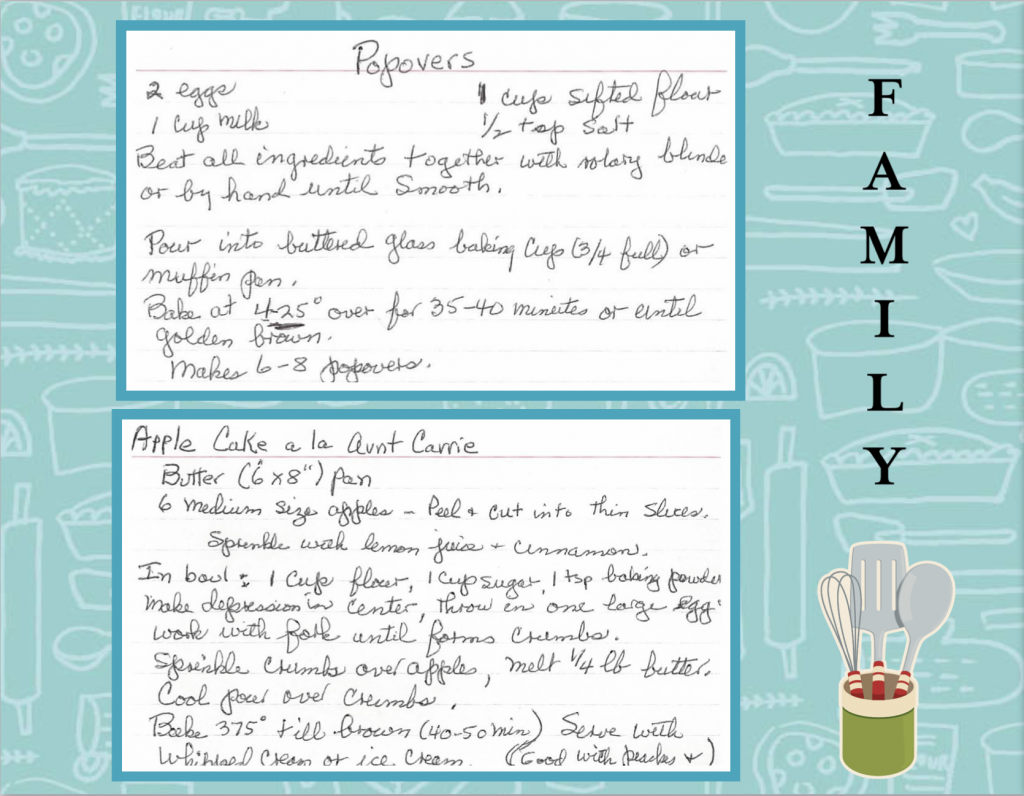 Popovers
2 eggs
1 cup sifted flour
1 cup milk
1/2 tsp salt
Beat all ingredients together with rotary blende
or by hand until smooth.
Pour into buttered glass baking cups (3/4 full) or
muffin pan.
Bake at 425° over for 35-40 minutes or until
golden brown.
Makes 6-8 popovers.
Apple Cake a la Aunt Carrie
Butter (6 x 8") pan
6 medium size apples - Peel + cut into thin slices.
Sprinkle with lemon juice + cinnamon.
In bowl: 1 cup flour, 1 cup sugar, 1 tsp baking powder
make depression in center, throw in one large egg.
work with fork until forms crumbs.
Sprinkle crumbs over apples, melt 1/4 lb butter.
Cool pour over crumbs.
Bake 375° till brown (40-50 min) Serve with
Whipped cream or ice cream. (Good with peaches +)
F
A
M
I
L
Y